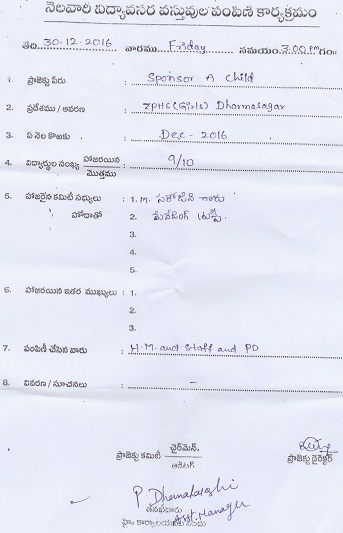 నెలవారీ విద్యావసర వస్తువుల పంపిణి కార్యక్రమం
తేది 30-12-2016 వారము Friday సమయం 3:00 PM గం॥
1. ప్రాజెక్టు పేరు : Sponsor A Child
2. ప్రదేశము / ఆవరణ : ZPHS (Girls) Dharmalagar
3. ఏ నెల కొఱకు : Dec - 2016
4. విద్యార్థుల సంఖ్య హాజరయిన / మొత్తము : 9/10
5. హాజరైన కమిటీ సభ్యులు : 1. M. సరోజిని గారు
హోదాతో 2. మేనేజింగ్ ట్రస్టీ.
3.
4.
5.
6. హాజరయిన ఇతర ముఖ్యులు : 1.
2.
3.
7. పంపిణీ చేసిన వారు : H.M. and Staff and PD
8. వివరణ / సూచనలు : -
ప్రాజెక్టు కమిటీ చైర్మెన్, / ఆడిటర్
ప్రాజెక్టు డైరెక్టర్
P. Dhanalakshi
తనిఖీదారు
హెచ్ కార్యాలయము Asst. Manager